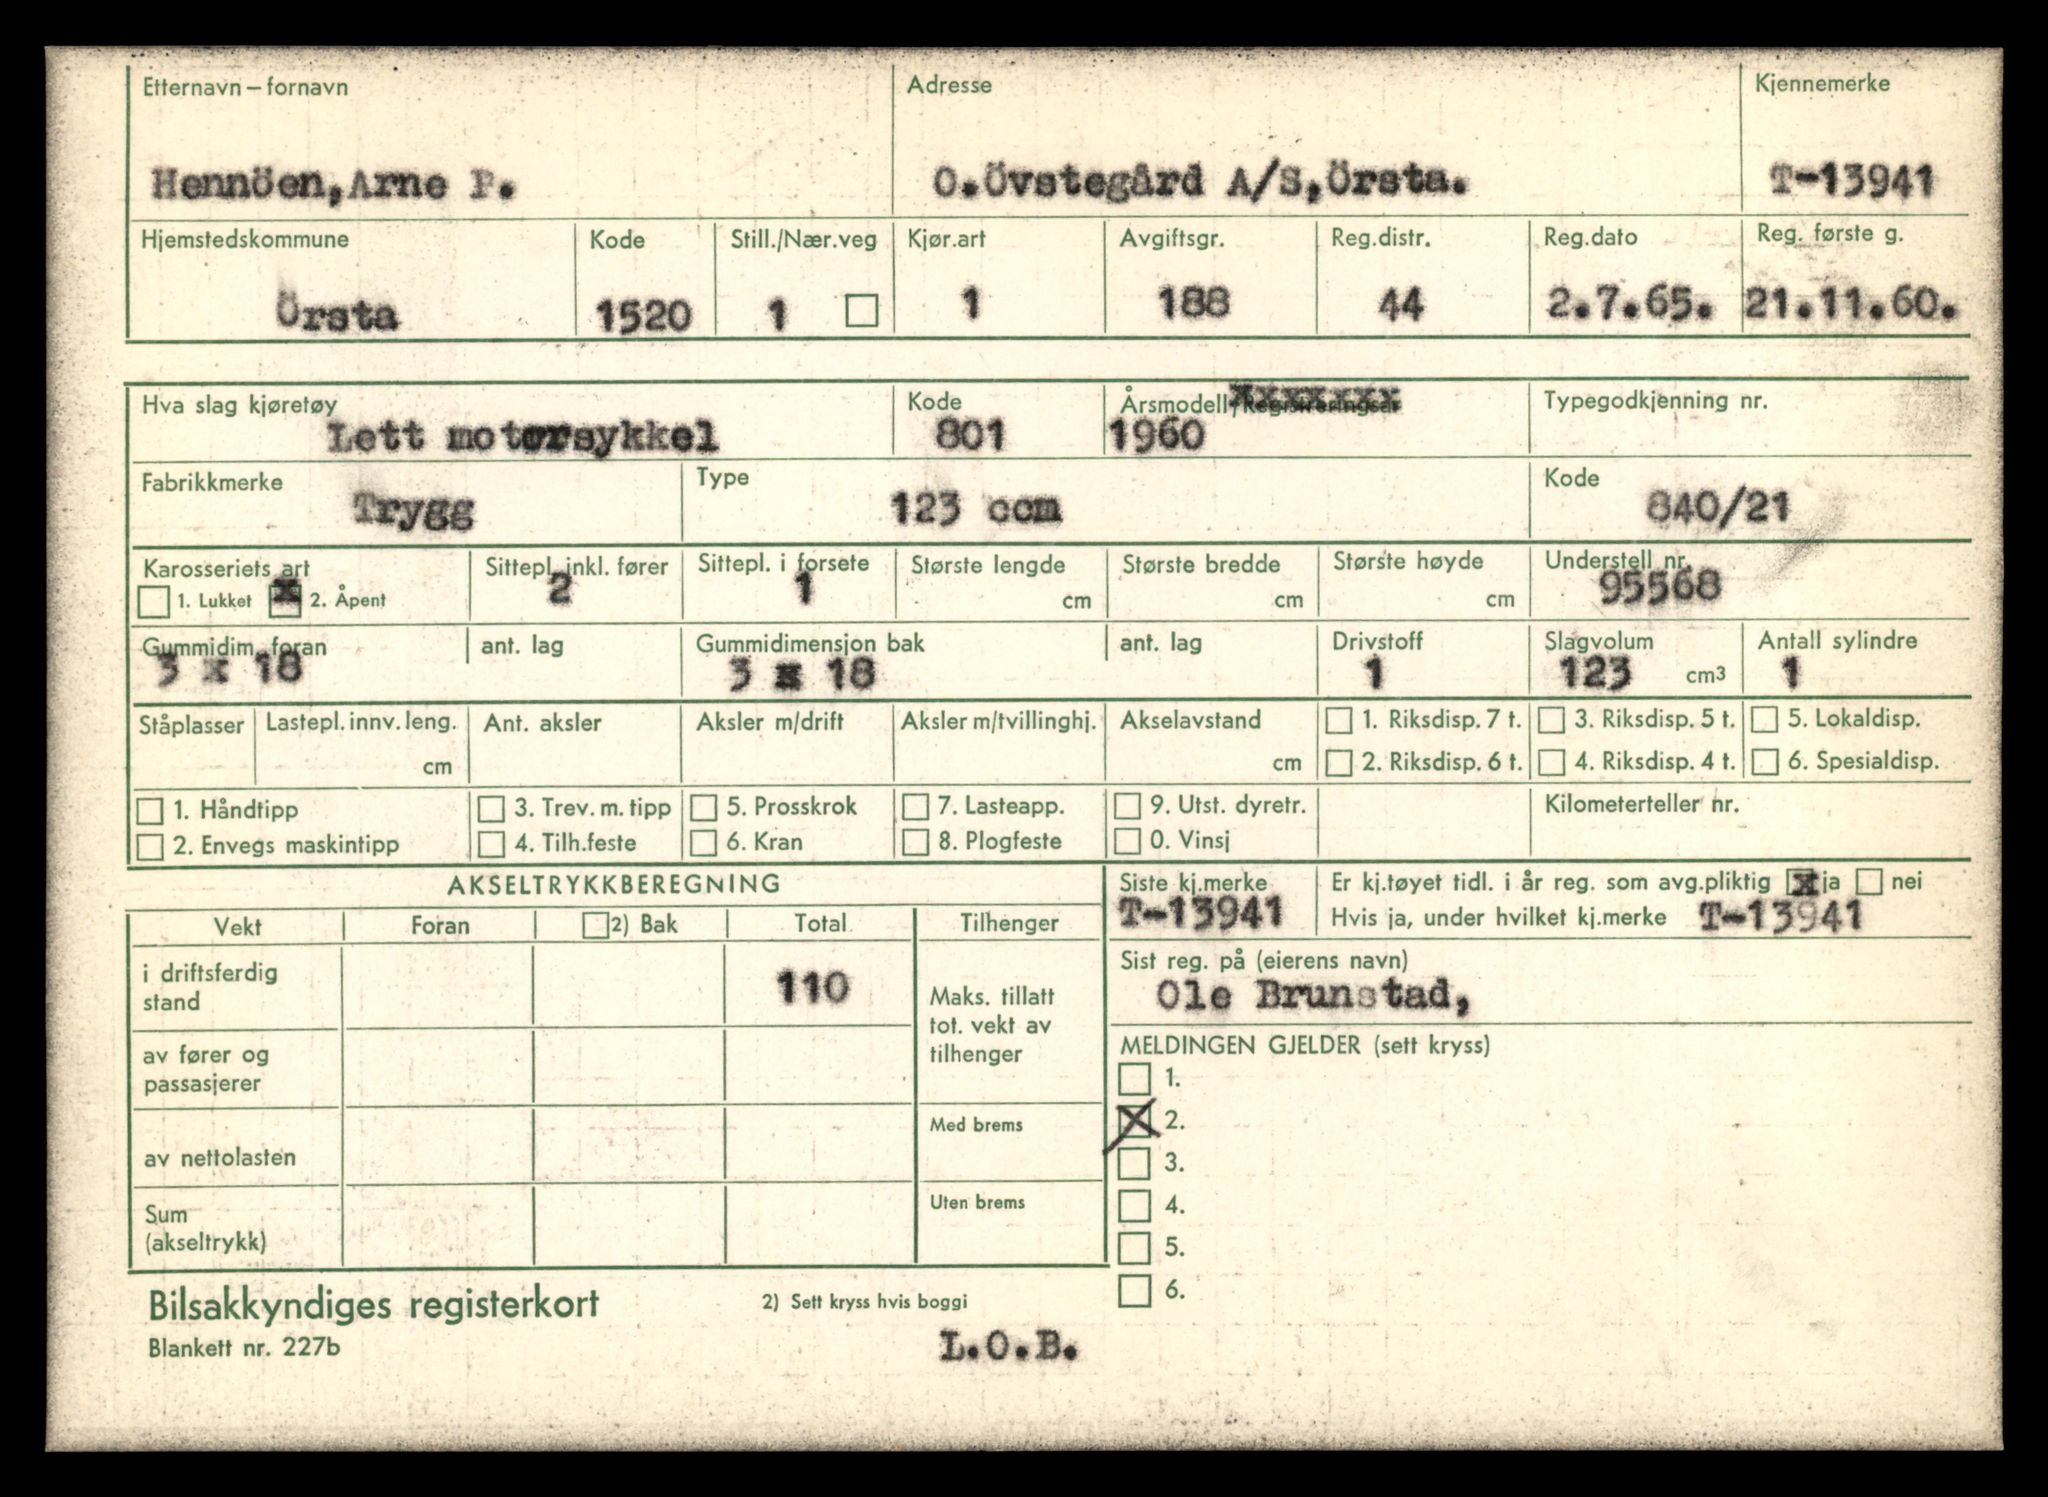 Etternavn – fornavn Adresse Kjennemerke
Hennöen, Arne P. O.Övstegård A/S, Örsta. T-13941
Hjemstedskommune Kode Still./Nær.veg Kjør.art Avgiftsgr. Reg.distr. Reg.dato Reg. første g.
Örsta 1520 1 1 188 44 2.7.65. 21.11.60.
Hva slag kjøretøy Kode Årsmodell/Registreringsår Typegodkjenning nr.
Lett motorsykkel 801 1960
Fabrikkmerke Type Kode
Trygg 123 ccm 840/21
Karosseriets art Sittepl. inkl. fører Sittepl. i forsete Største lengde Største bredde Største høyde Understell nr.
1. Lukket x 2. Åpent 2 1 cm cm cm 95568
Gummidim. foran ant. lag Gummidimensjon bak ant. lag Drivstoff Slagvolum Antall sylindre
3 x 18 3 x 18 1 123 cm3 1
Ståplasser Lastepl. innv. leng. Ant. aksler Aksler m/drift Aksler m/tvillinghj. Akselavstand 1. Riksdisp. 7 t. 3. Riksdisp. 5 t. 5. Lokaldisp.
cm cm 2. Riksdisp. 6 t. 4. Riksdisp. 4 t. 6. Spesialdisp.
1. Håndtipp 3. Trev. m. tipp 5. Prosskrok 7. Lasteapp. 9. Utst. dyretr. Kilometerteller nr.
2. Envegs maskintipp 4. Tilh.feste 6. Kran 8. Plogfeste 0. Vinsj
AKSELTRYKKBEREGNING Siste kj.merke Er kj.tøyet tidl. i år reg. som avg.pliktig x ja nei
T-13941 Hvis ja, under hvilket kj.merke T-13941
Vekt Foran 2) Bak Total Tilhenger
Sist reg. på (eierens navn)
i driftsferdig stand 110 Ole Brunstad,
Maks. tillatt tot. vekt av tilhenger
av fører og passasjerer
MELDINGEN GJELDER (sett kryss)
1.
Med brems X 2.
av nettolasten 3.
Uten brems 4.
Sum (akseltrykk) 5.
6.
Bilsakkyndiges registerkort 2) Sett kryss hvis boggi
Blankett nr. 227b L.O.B.